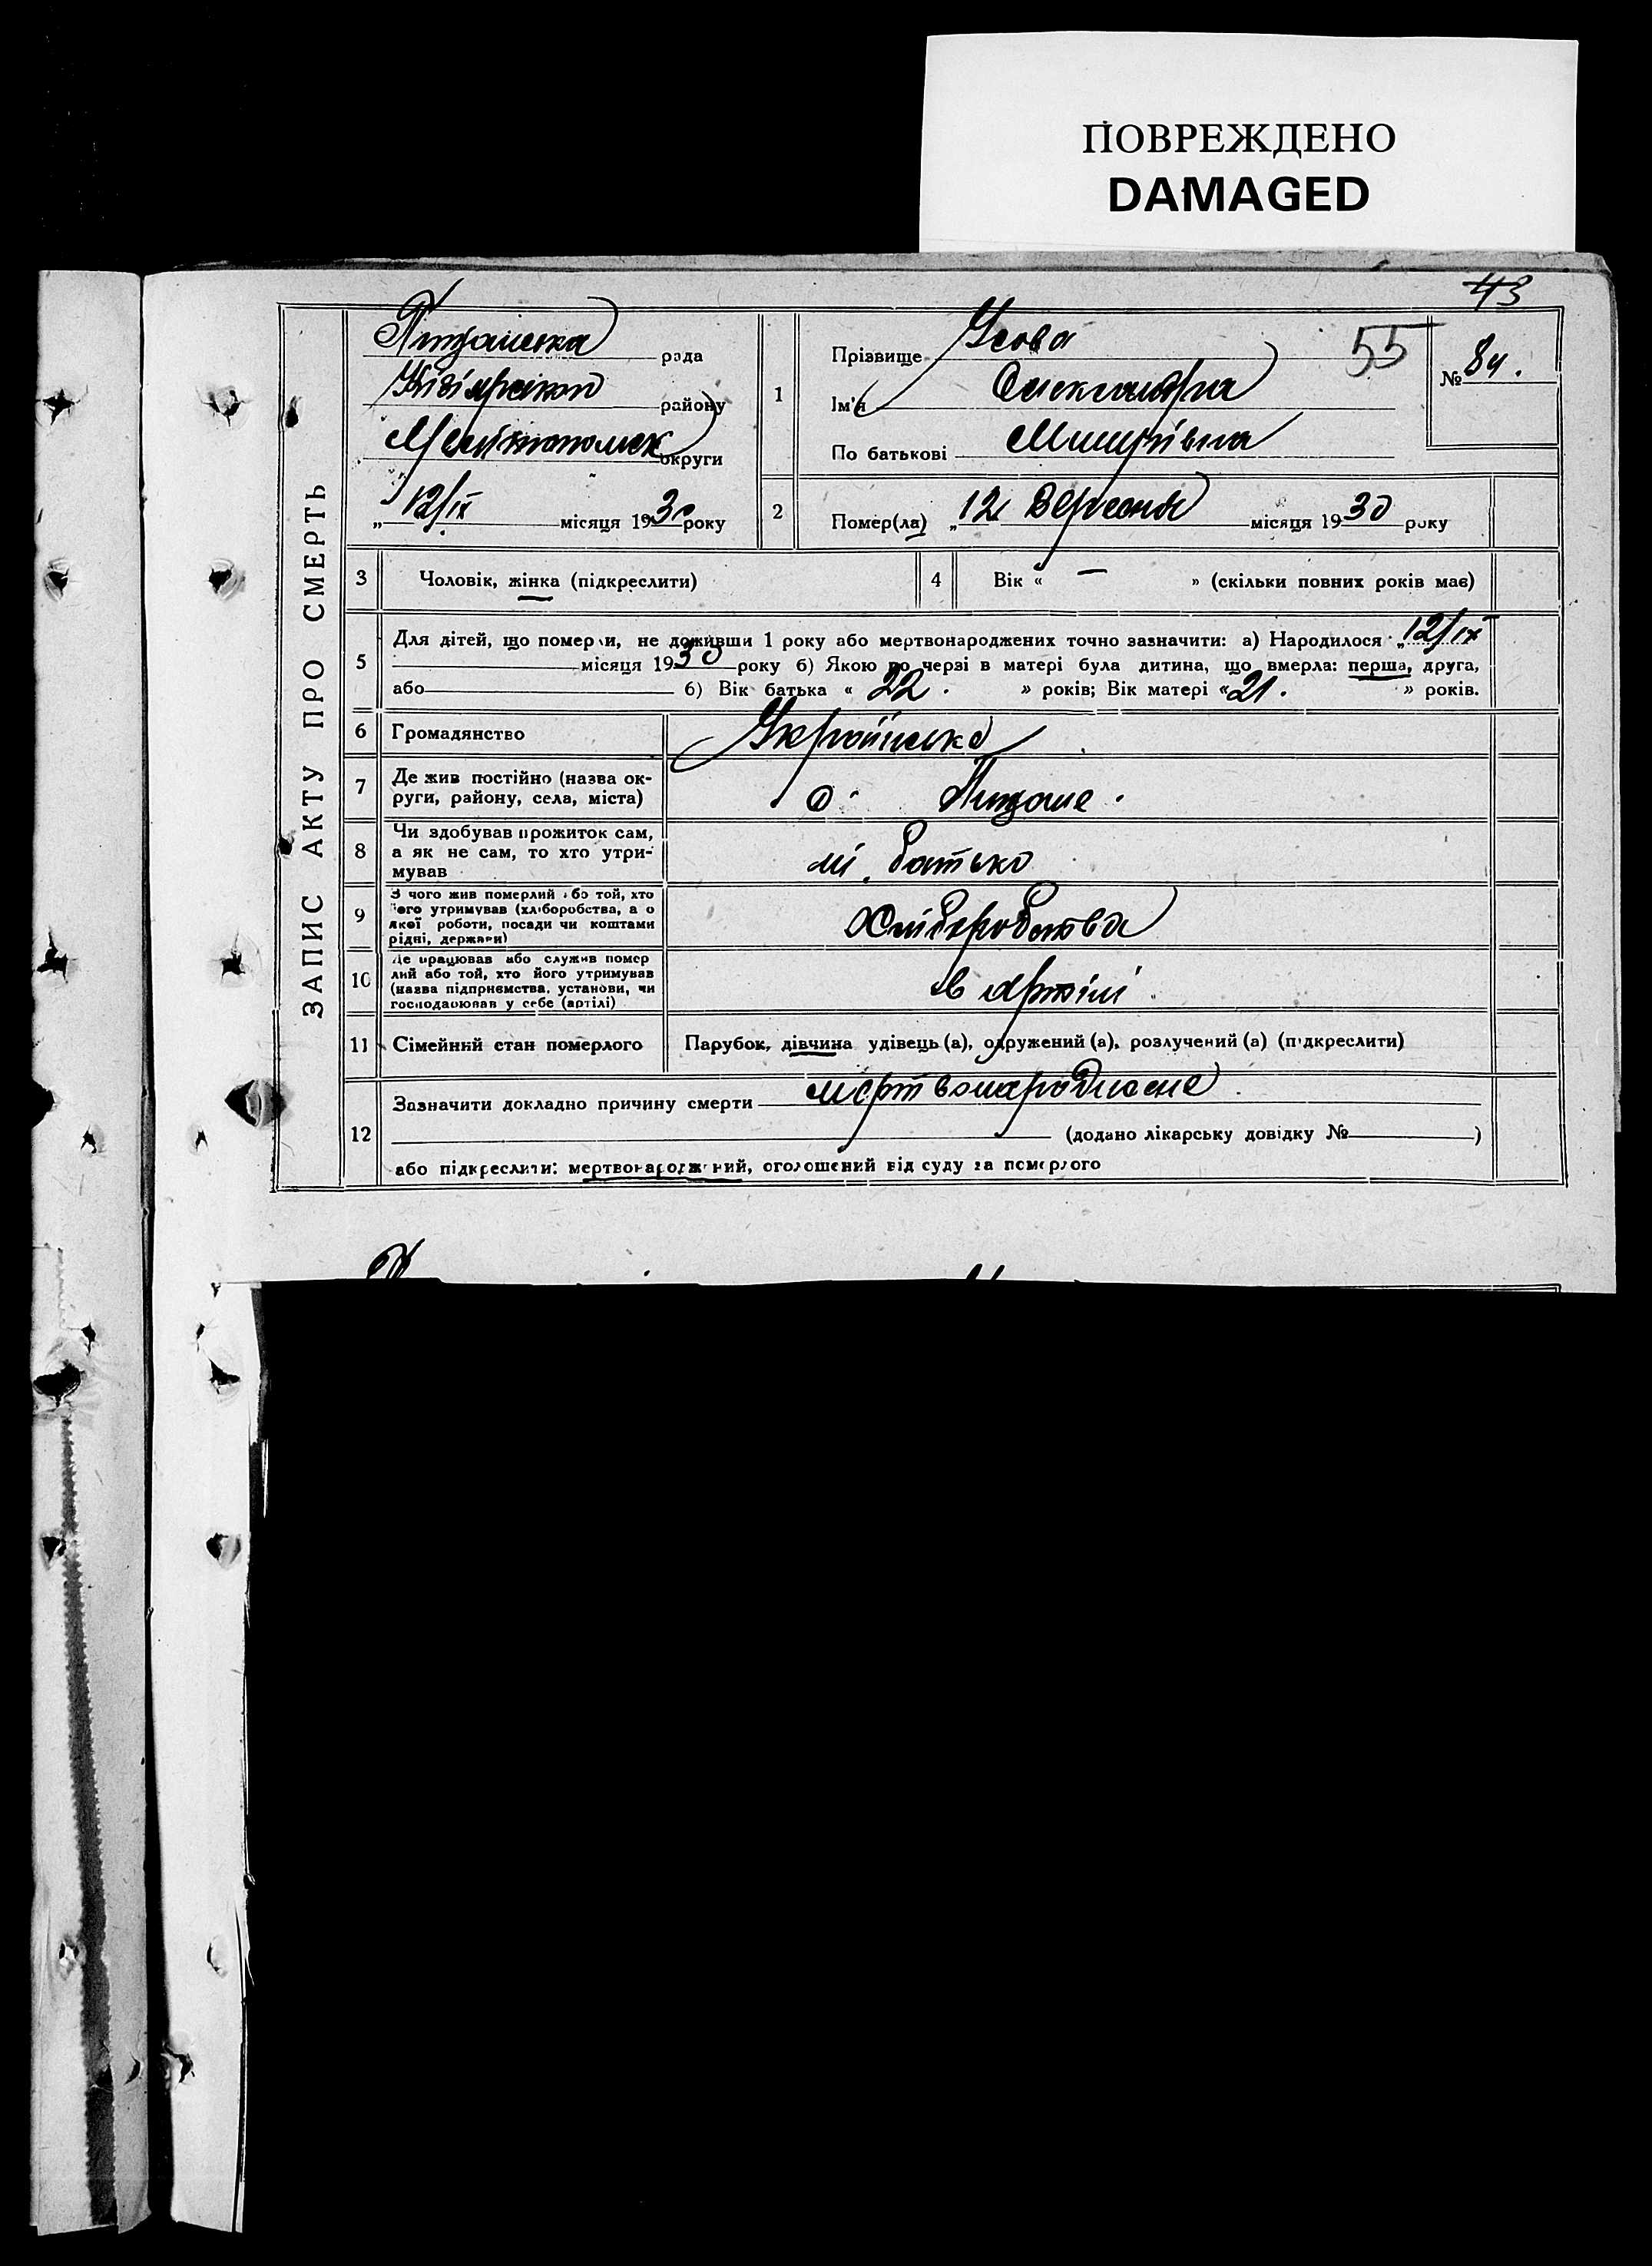 ПОВРЕЖДЕНО
DAMAGED
43
55
ЗАПИС АКТУ ПРО СМЕРТЬ
рада
району
Мелітопольск округи
„12/ІХ місяця 1930 року
1
Прізвище Усова
Ім'я Олександра
По батькові
№ 84.
2
Помер(ла) „12 Вересня місяця 1930 року
3 Чоловік, жінка (підкреслити)
4 Вік « — » (скільки повних років має)
5 Для дітей, що померли, не доживши 1 року або мертвонароджених точно зазначити: а) Народилося „12/ІХ
місяця 1930 року б) Якою по черзі в матері була дитина, що вмерла: перша, друга,
або б) Вік батька « 22. » років; Вік матері « 21. » років.
6 Громадянство Українське
7 Де жив постійно (назва ок-
руги, району, села, міста)
8 Чи здобував прожиток сам,
а як не сам, то хто утри-
мував
ні. батько
9 З чого жив померлий або той, хто
його утримував (хліборобства, а о
якої роботи, посади чи коштами
рідні, держави)
Хліборобства
10 Де працював або служив помер
лий або той, хто його утримував
(назва підприємства, установи, чи
господарював у себе (артілі)
в артілі
11 Сімейний стан померлого Парубок, дівчина удівець (а), одружений (а), розлучений (а) (підкреслити)
12 Зазначити докладно причину смерти
(додано лікарську довідку № )
або підкреслити: мертвонароджений, оголошений від суду за померлого